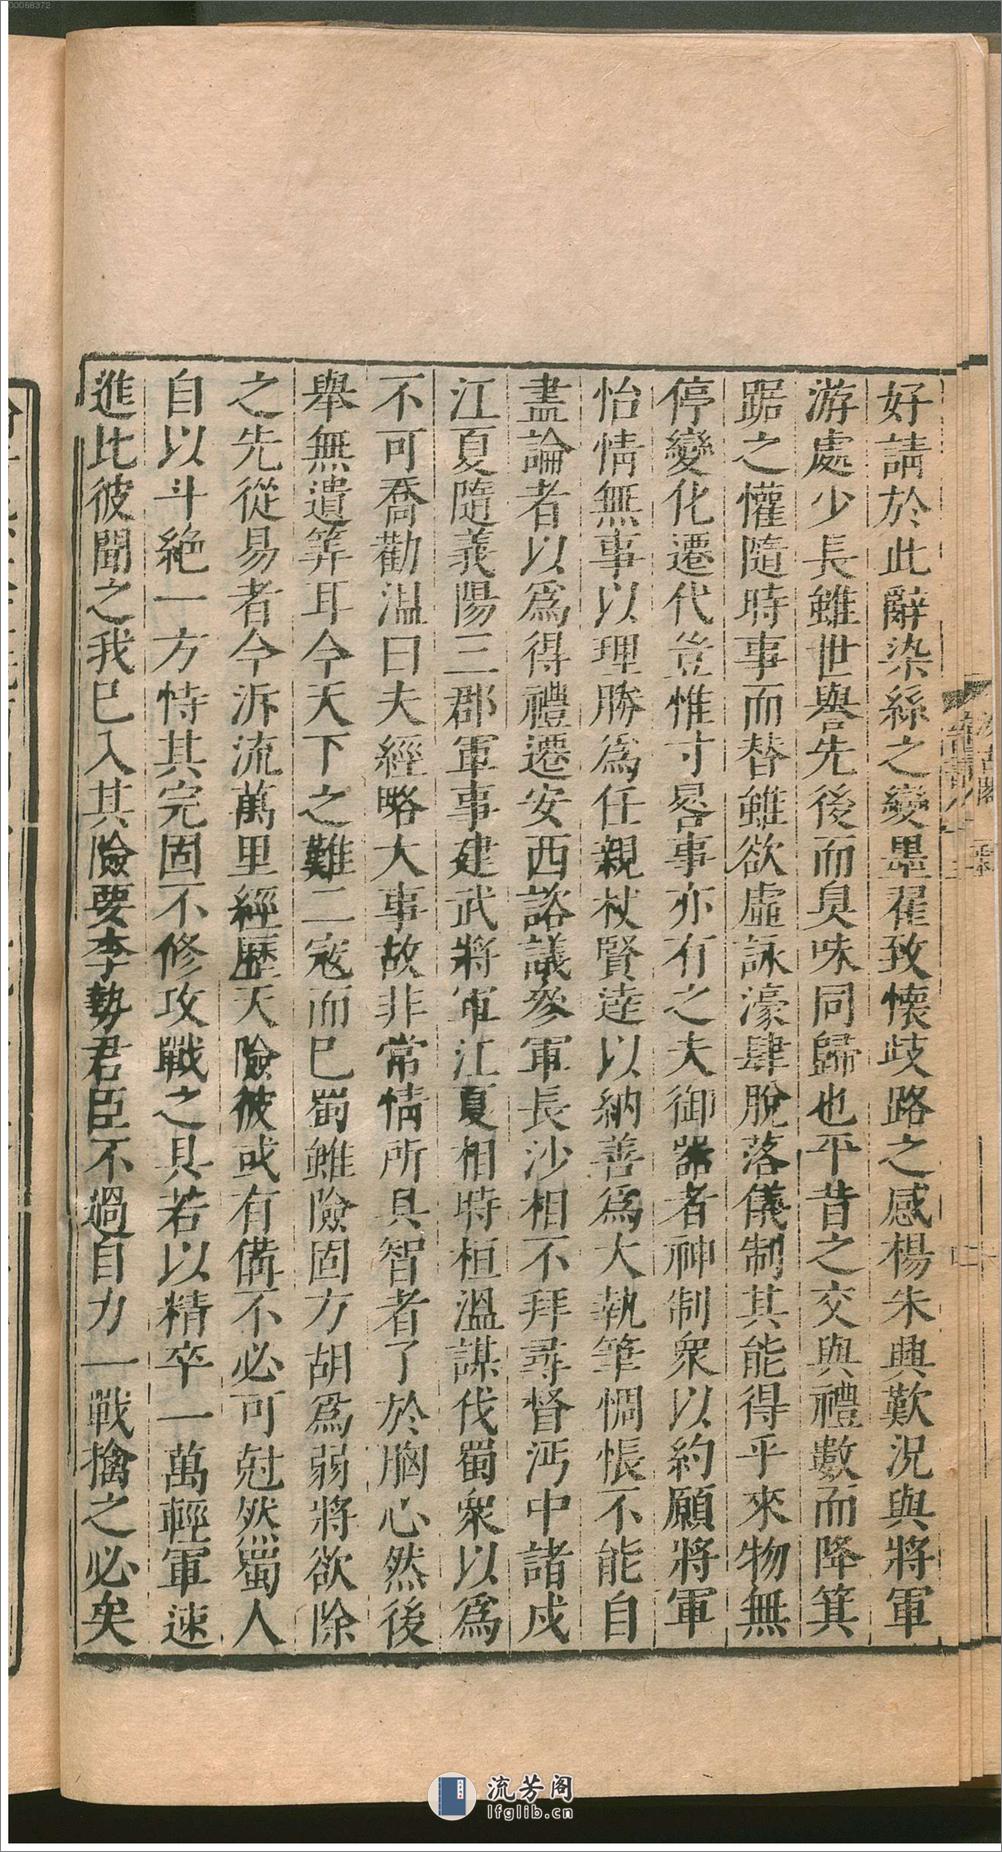 好請於此辭染絲之變墨翟致懷歧路之感楊朱興歎況與將軍
游處少長雖世譽先後而臭味同歸也平昔之交與禮數而降箕
踞之懽隨時事而替雖欲虛詠濠肆脫落儀制其能得乎來物無
停變化遷代豈惟寸晷事亦有之夫御器者神制衆以約願將軍
怡情無事以理勝爲任親杖賢逹以納善爲大執筆惆悵不能自
盡論者以爲得禮遷安西諮議參軍長沙相不拜尋督沔中諸戍
江夏隨義陽三郡軍事建武將軍江夏相時桓溫謀伐蜀衆以爲
不可喬勸溫曰夫經略大事故非常情所具智者了於胸心然後
舉無遺筭耳今天下之難二寇而已蜀雖險固方胡爲弱將欲除
之先從易者今泝流萬里經歷天險彼或有備不必可尅然蜀人
自以斗絕一方恃其完固不修攻戰之具若以精卒一萬輕軍速
進比彼聞之我已入其險要李勢君臣不過自力一戰擒之必矣
流芳阁
lfglib.cn
00068372